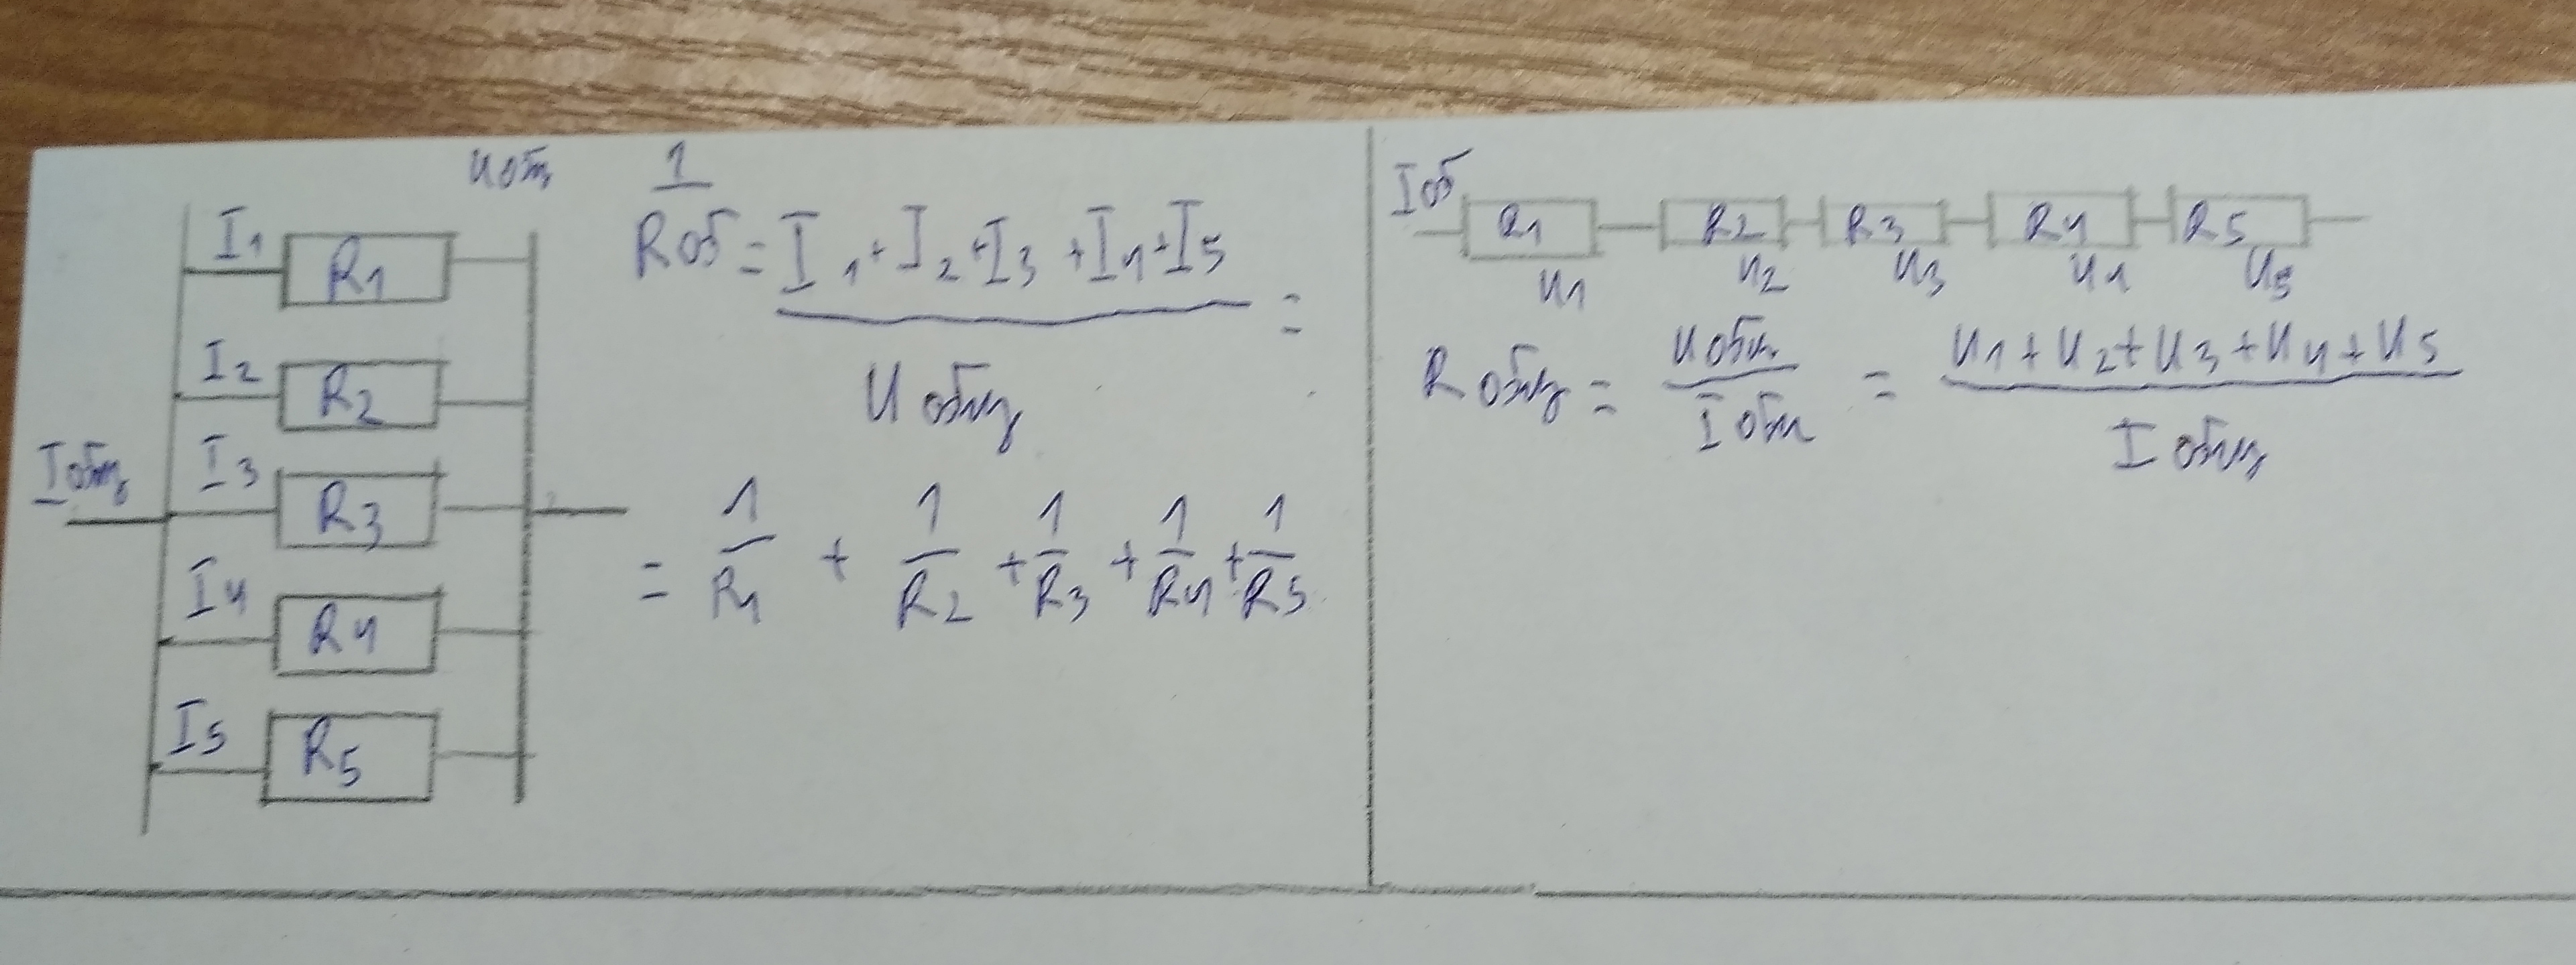 Uобщ
I1
R1
I2
R2
Iобщ
I3
R3
I4
R4
I5
R5
1
Rоб = I1 + I2 + I3 + I4 + I5 =
Uобщ
= 1/R1 + 1/R2 + 1/R3 + 1/R4 + 1/R5
Iоб
R1 R2 R3 R4 R5
U1 U2 U3 U4 U5
Rобщ = Uобщ/Iобщ = U1 + U2 + U3 + U4 + U5
Iобщ